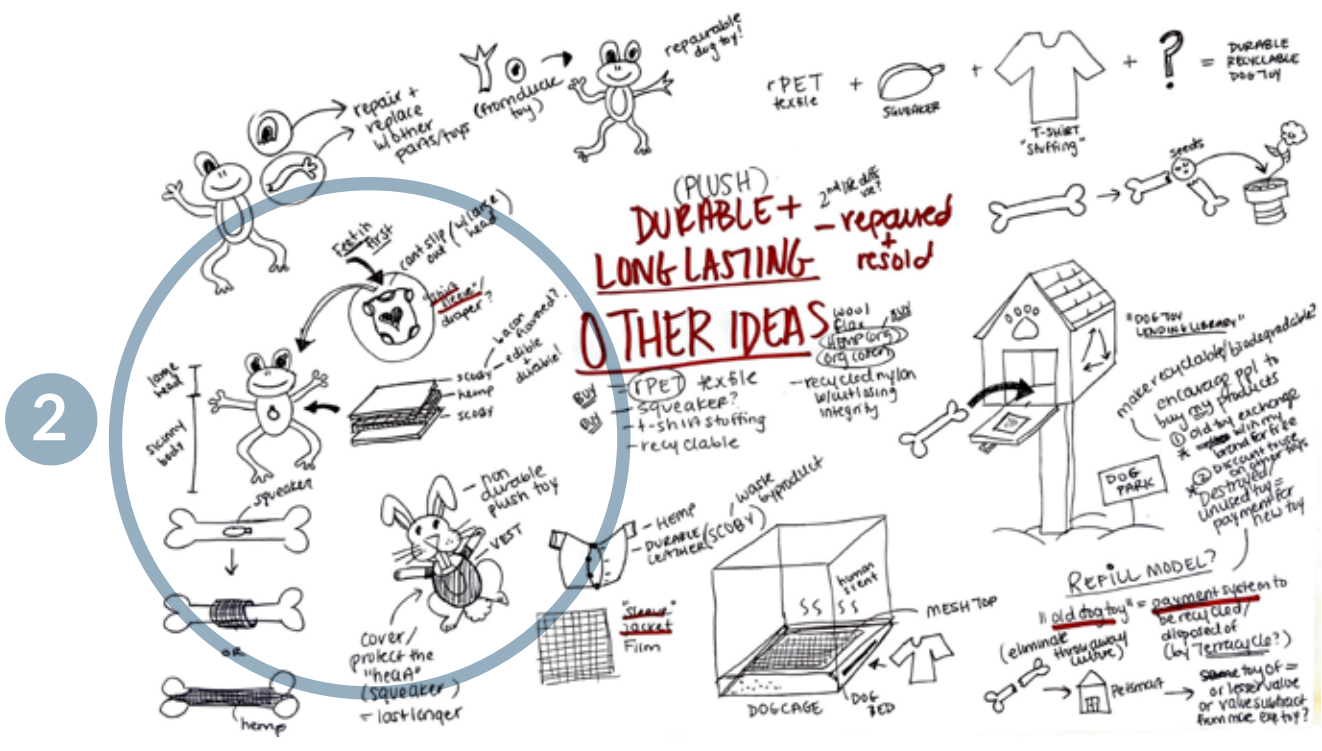 repair +
replace
w/other
parts/toys
(from duck
toy)
repairable
dog toy!
rPET
textile
+
SQUEAKER
+
T-SHIRT
"stuffing"
+
?
=
DURABLE
RECYCLABLE
DOG TOY
seeds
(PLUSH)
DURABLE +
LONG LASTING
2nd life
- repaired
+
resold
OTHER IDEAS
BUY
BUY
- rPET textile
- squeaker?
- t-shirt stuffing
- recyclable
wool
flax
HEMP (org)
org cotton
BUY
- recycled nylon
w/out losing
integrity
2
Feet in
first
cant slip
out (w/large
head)
"shirt
sleeve"/
draper?
large
head
skinny
body
SCOBY
hemp
SCOBY
bacon
flavored?
- edible
+
durable!
squeaker
OR
hemp
- non
durable
plush toy
VEST
cover/
protect the
"heart"
(squeaker)
- last longer
- HEMP
- DURABLE
LEATHER (SCOBY)
waste
byproduct
"sleeve"
jacket
Film
human
scent
MESH TOP
DOG CAGE
DOG
BED
"DOG TOY
LENDING LIBRARY"
DOG
PARK
make recyclable/biodegradable?
encourage ppl to
buy my products
① old toy exchange
* win my
brand for free
* ② Discount
on other toys
Destroyed/
unused toy =
payment for
new toy
REFILL MODEL?
"old dog toy" = payment system to
be recycled/
disposed of
(by Terracycle?)
(eliminate
throwaway
culture)
Petsmart
same toy of =
or lesser value
or value subtract
from more exp toy?